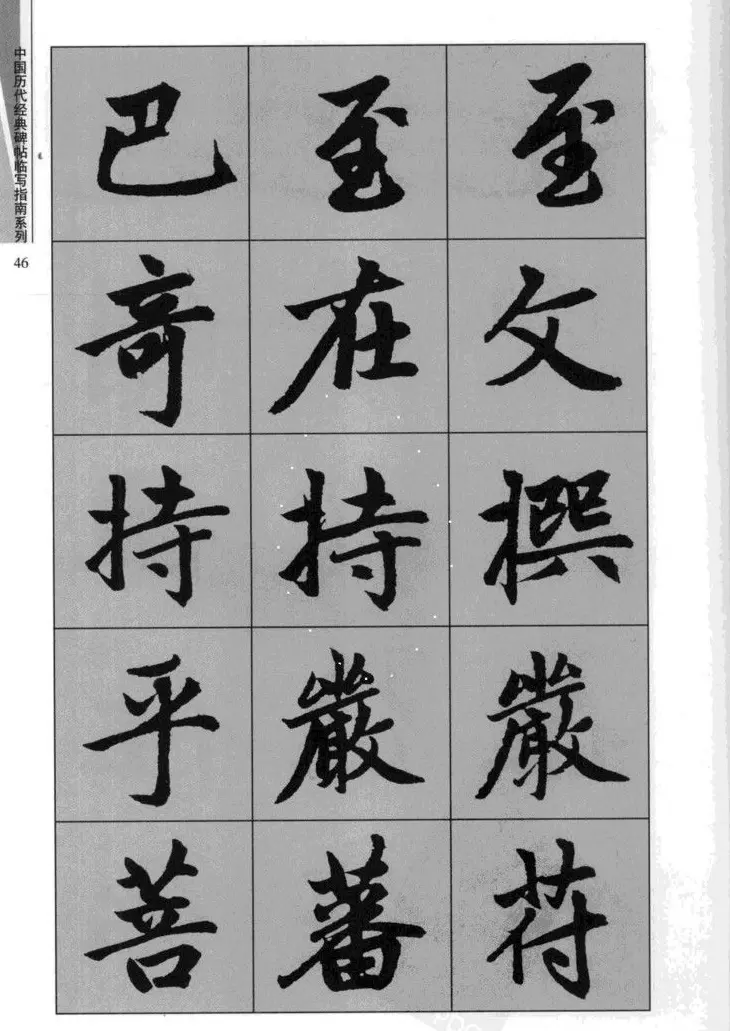 中国历代经典碑帖临写指南系列
46
至文撰嚴苻
至在持嚴蕃
巴奇持乎菩